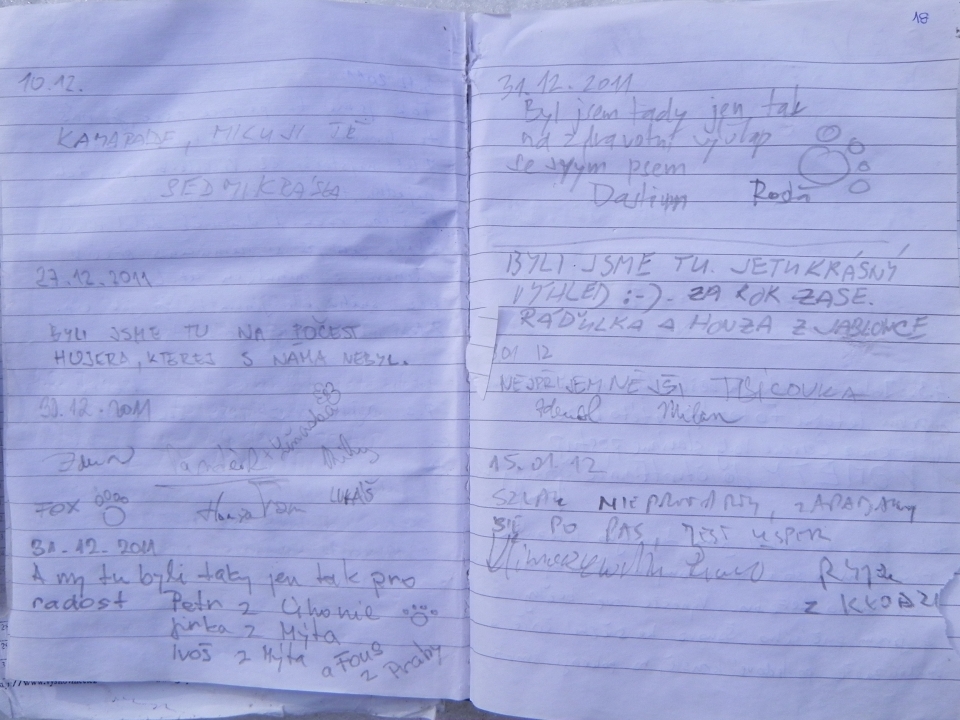 10.12.
KAMARÁDE, MILUJI TĚ
SEDMIKRÁSKA
27.12.2011
BYLI JSME TU NA POČEST
HUJERA, KTEREJ S NÁMA NEBYL.
30.12.2011
FOX
Honza Tom LUKÁŠ
31.12.2011
A my tu byli taky jen tak pro
radost Petr z Úhonic
Jirka z Mýta
Ivoš z Mýta a Fous
z Prahy
18
31.12.2011
Byl jsem tady jen tak
na zdravotní výšlap
se svým psem
Rodá
BYLI JSME TU. JE TU KRÁSNÝ
VÝHLED :-). ZA ROK ZASE.
RADULKA A HONZA Z JABLONCE
01 12
NEJPŘÍJEMNĚJŠÍ TISÍCOVKA
Zdeněk Milan
15.01.12
SZLAK NIEPRZETARTY, ZAPADAMY
SIĘ PO PAS, JEST SUPER
z KŁODZKA